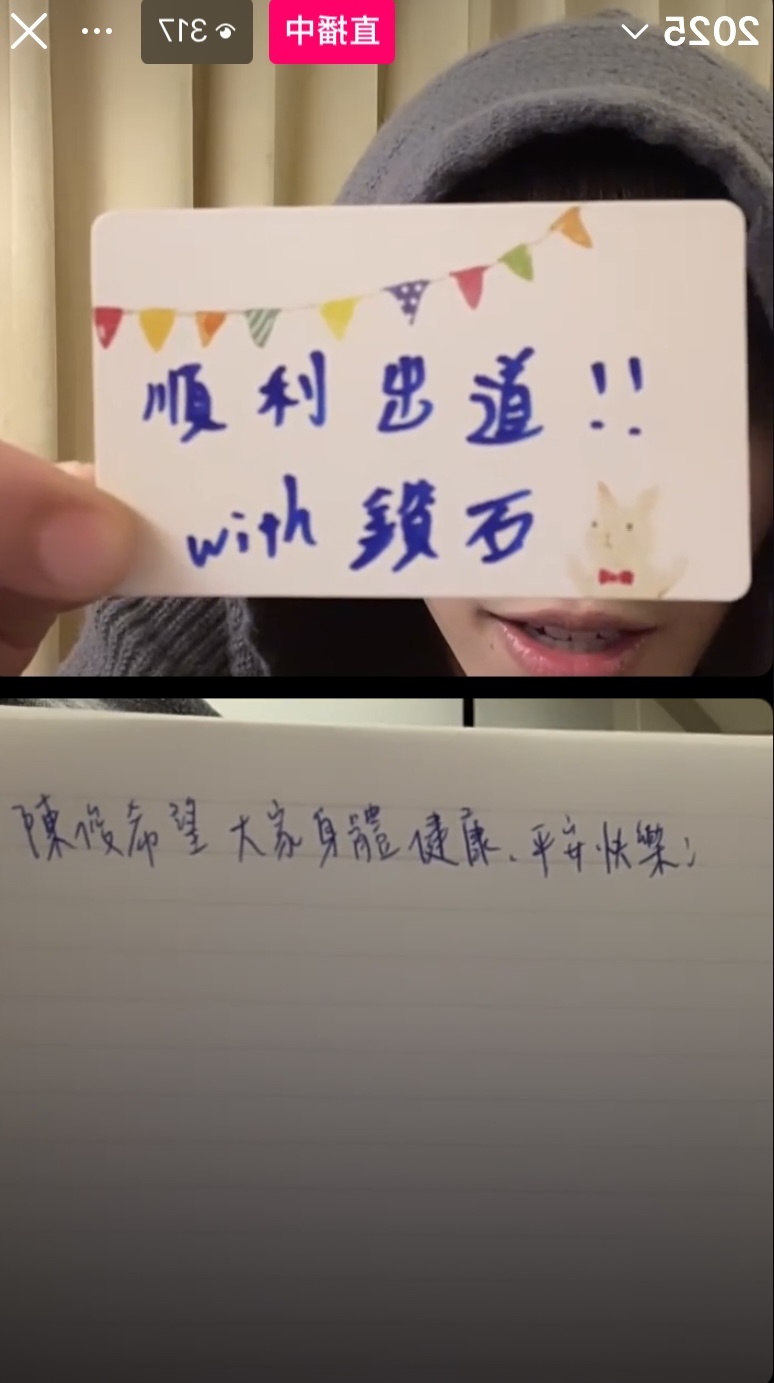 2025
直播中
317
順利出道!!
with 鑽石
陳俊希望大家身體健康、平安快樂!